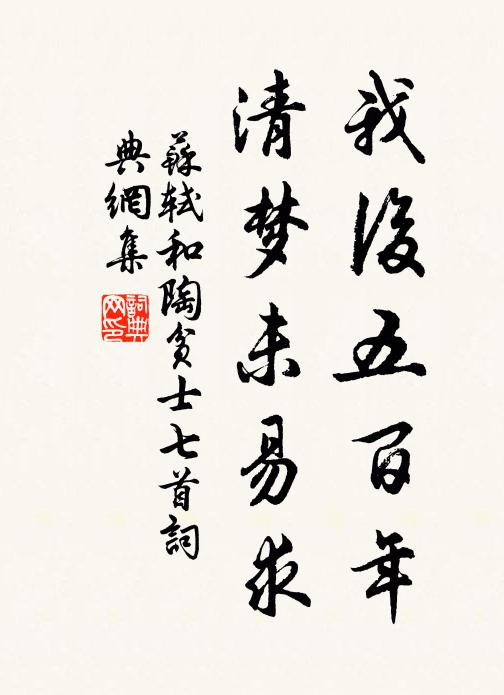 我後五百年
清梦未易求
蘇軾和陶貧士七首詞
典網集
詞典
网印